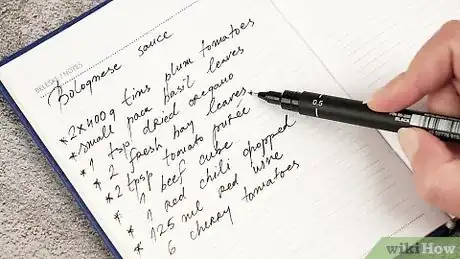 BELEŠKE / NOTES
Bolognese sauce
* 2x400g tins plum tomatoes
* small pack basil leaves
* 1 tsp dried oregano
* 2 fresh bay leaves
* 2 tbsp tomato purée
* 1 beef cube
* 1 red chili chopped
* 125 ml red wine
6 cherry tomatoes
0.5
BLACK
wikiHow